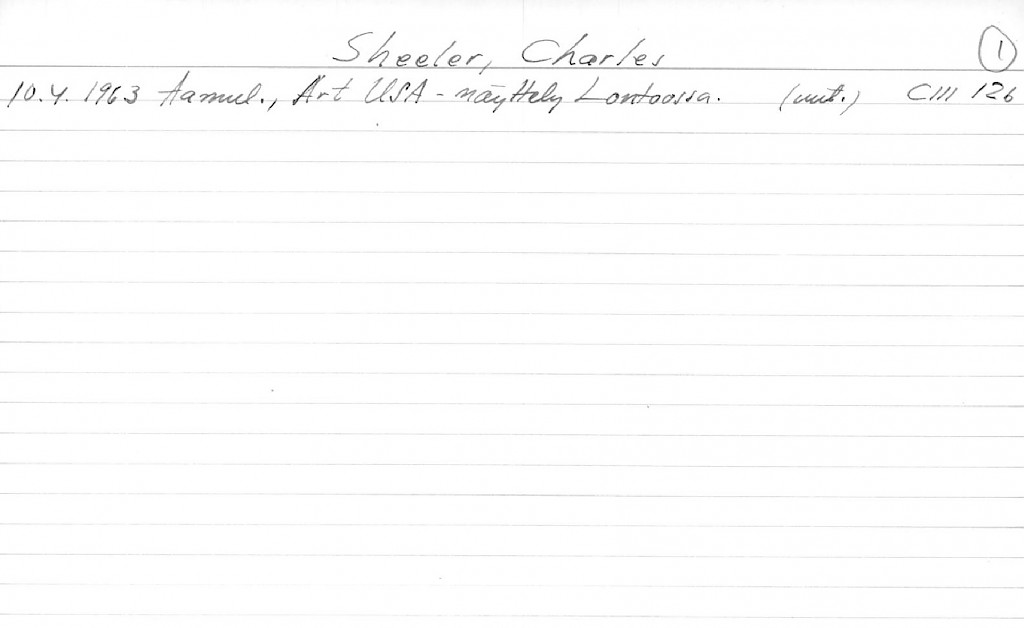 Sheeler, Charles 1
10.4. 1963 Aamul., Art USA - näyttely Lontoossa. (uut.) CIII 126